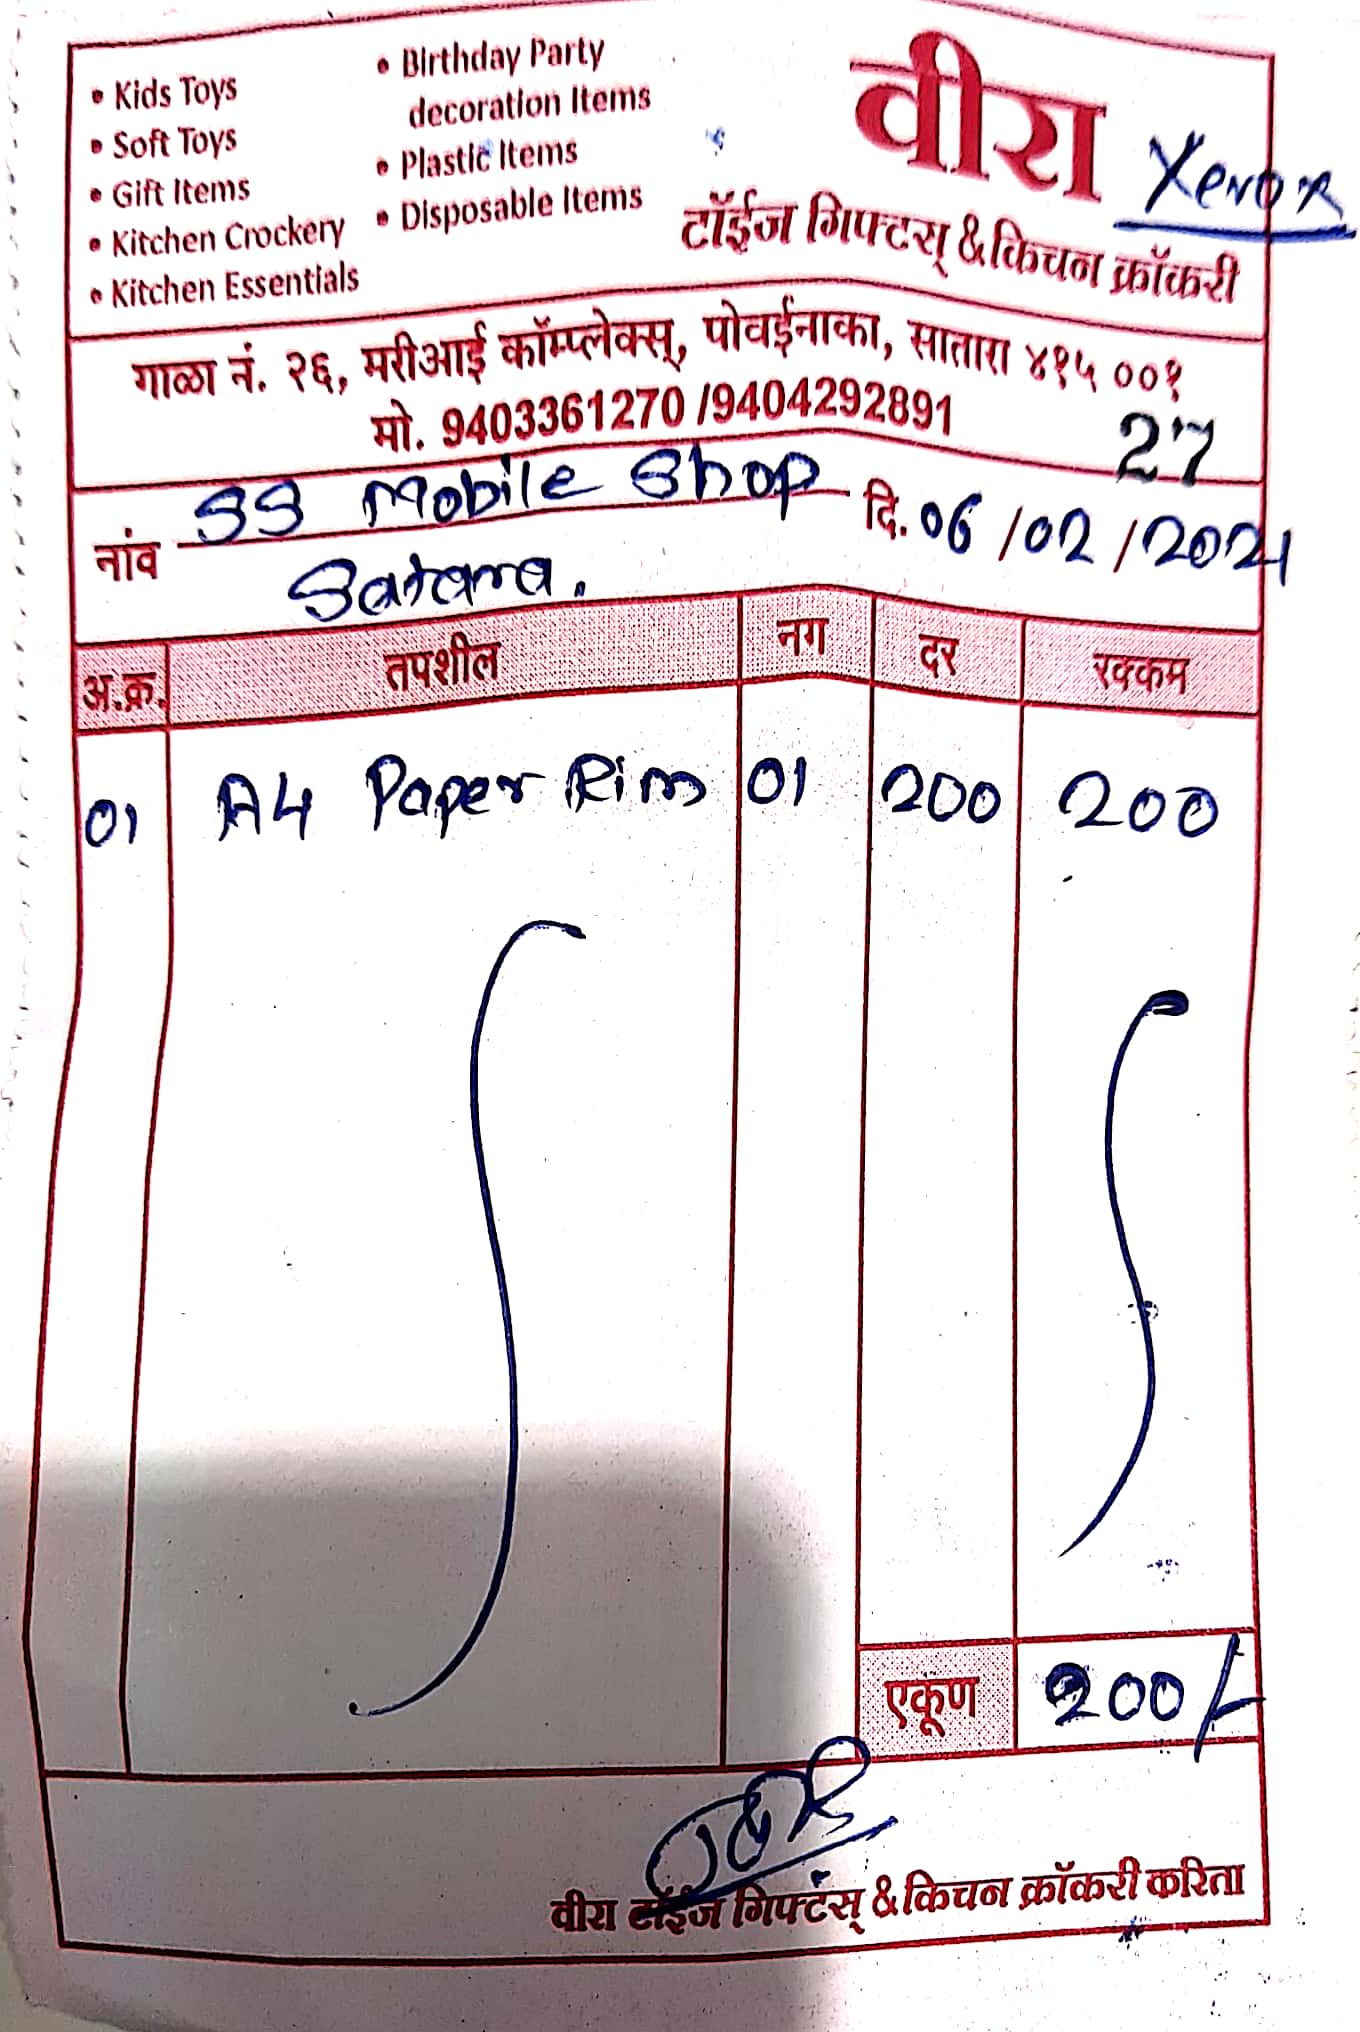 • Kids Toys
• Soft Toys
• Gift Items
• Kitchen Crockery
• Kitchen Essentials
• Birthday Party
decoration Items
• Plastic Items
• Disposable Items
वीरा Xerox
टॉईज गिफ्टस् & किचन क्रॉकरी
गाळा नं. २६, मरीआई कॉम्प्लेक्स्, पोवईनाका, सातारा ४१५ ००१
मो. 9403361270 /9404292891
27
नांव SS Mobile Shop दि. 06/02/2021
Satara.
अ.क्र. तपशील नग दर रक्कम
01 A4 Paper Rim 01 200 200
एकूण 200/-
वीरा टॉईज गिफ्टस् & किचन क्रॉकरी करिता